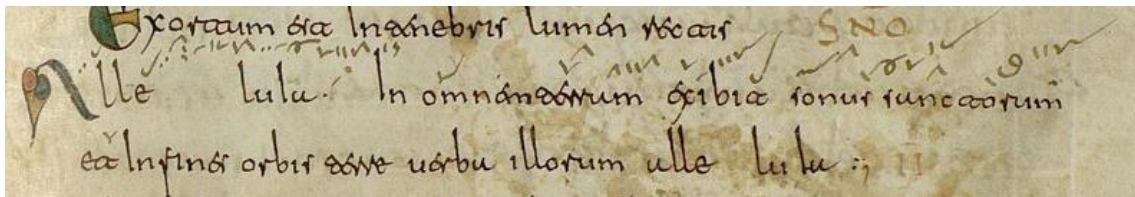 Exortum est In tenebris lumen rectis SNO
Alle luia. In omnem terram exibit sonus sanctorum
et In fines orbis terre uerba illorum alle luia :; II